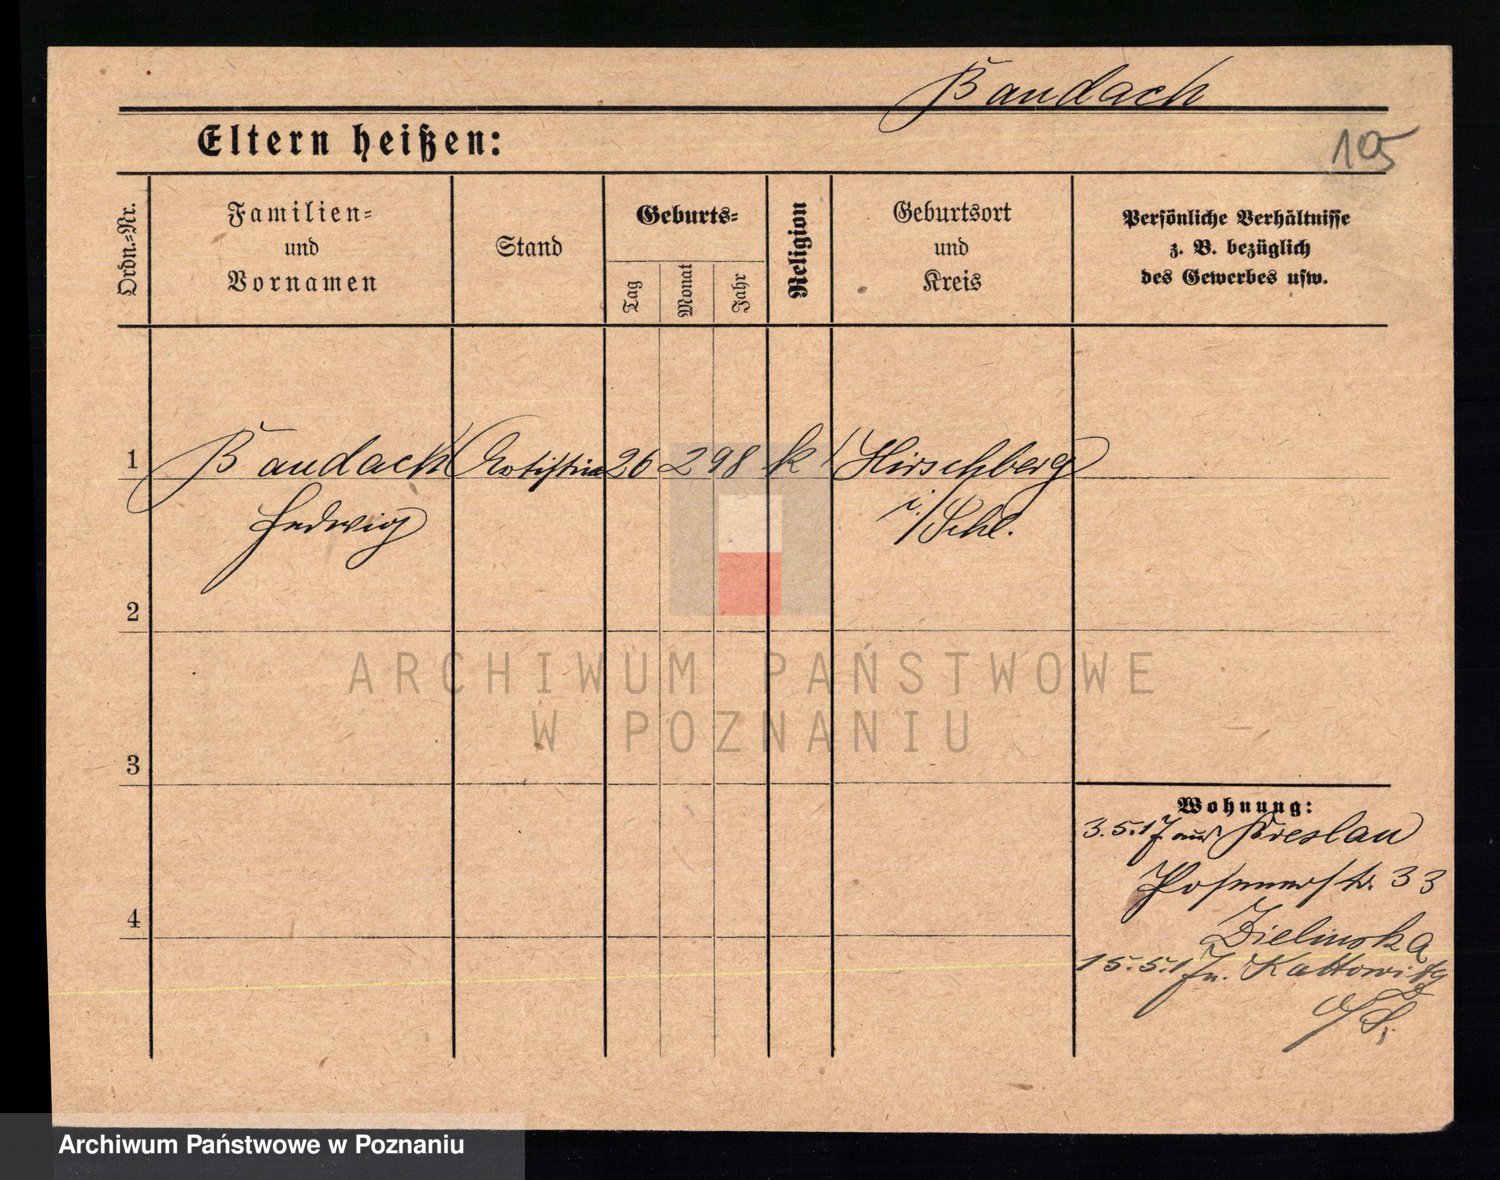 Baudach
105
Eltern heißen:
Ordn.-Nr.
Familien-
und
Vornamen
Stand
Geburts-
Tag
Monat
Jahr
Religion
Geburtsort
und
Kreis
Persönliche Verhältnisse
z. B. bezüglich
des Gewerbes usw.
1 Baudach Artistin 26 2 98 k Hirschberg
Hedwig i/Schl.
2
3
4
ARCHIWUM PAŃSTWOWE
W POZNANIU
Wohnung:
3.5.17 aus Breslau
Posenerstr. 33
Zielinska
15.5.17 n. Kattowitz
O/S.
Archiwum Państwowe w Poznaniu